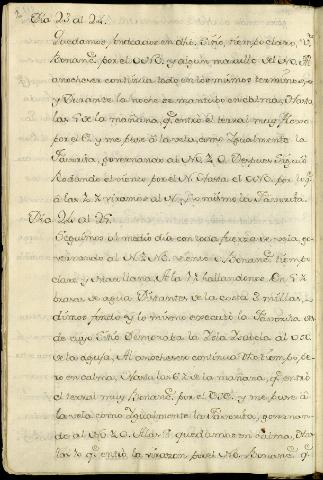 Dia 23 al 24.
Quedamos, fondeados en dho. Sitio, tiempo claro, V.to
Bonanc.e por el NO. y algun marullo del NO. Al
anochecer continúa todo en los mismos terminos,
y Durante la noche se mantubo en calma, hasta
las 5 de la mañana, q.e entró el terral muy flojo
por el E. y me puse à la vela, como Igualmente la
Favorita, governando al NO. ¼ O. Despues siguió
Rodando el viento por el N. hasta el ONO. por lo q.e
à las 7½ viramos al N. y lo mismo la Favorita.
Dia 24 al 25.
Seguimos al medio dia con toda fuerza de vela, go-
vernando al N ¼ NO. viento Bonanc.e tiempo
claro y Mar llana. A la 1½ hallandonos en 5½
brazas de agua, Distantes de la costa 2 millas,
dimos fondo y lo mismo executó la Favorita des-
de cuyo Sitio Demoraba la
de la aguja. Al anochecer continúa dho tiempo, pe-
ro en calma, hasta las 6½ de la mañana, q.e entró
el terral muy Bonanc.e por el y me puse à
la vela como Igualmente la Favorita, governan-
do al NO. ¼ O. A las 9 quedamos en calma, hta
las 10 q.e entró la virazon por el NO. Bonanc.e q.e